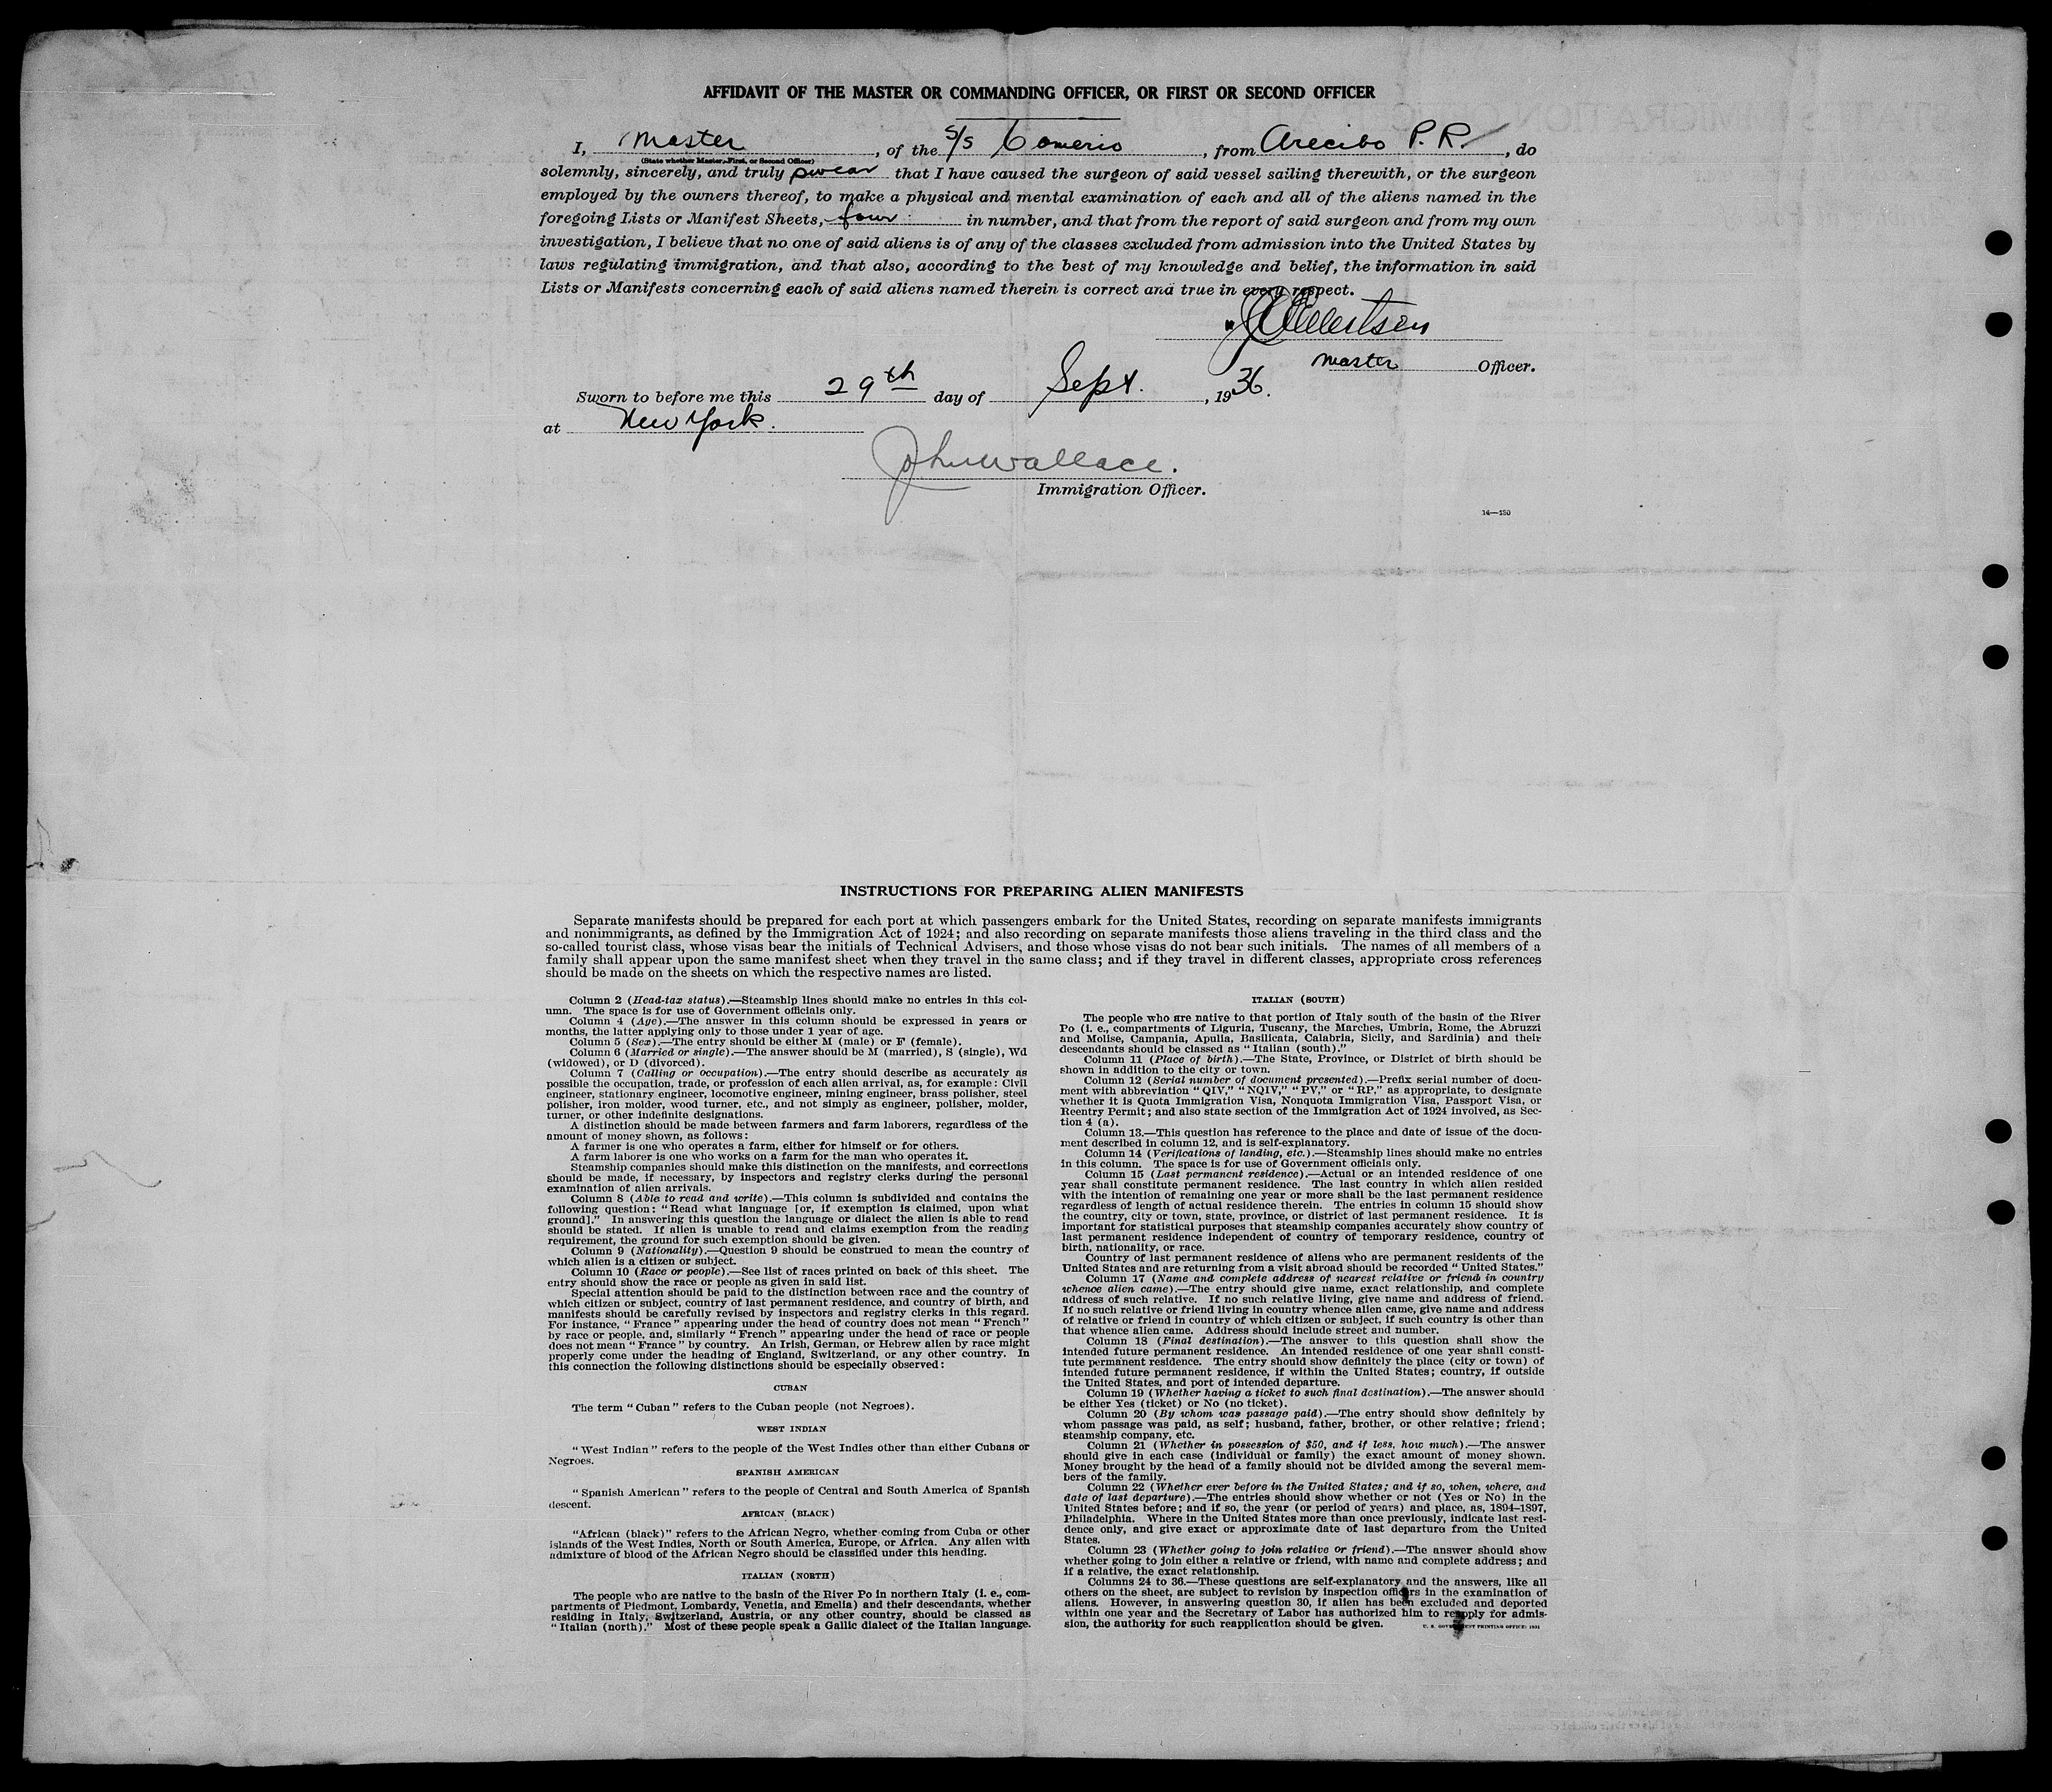 AFFIDAVIT OF THE MASTER OR COMMANDING OFFICER, OR FIRST OR SECOND OFFICER
I, Master, of the S/S Comerio, from Arecibo P.R., do
(State whether Master, First, or Second Officer)
solemnly, sincerely, and truly swear that I have caused the surgeon of said vessel sailing therewith, or the surgeon
employed by the owners thereof, to make a physical and mental examination of each and all of the aliens named in the
foregoing Lists or Manifest Sheets, four in number, and that from the report of said surgeon and from my own
investigation, I believe that no one of said aliens is of any of the classes excluded from admission into the United States by
laws regulating immigration, and that also, according to the best of my knowledge and belief, the information in said
Lists or Manifests concerning each of said aliens named therein is correct and true in every respect.
Master Officer.
Sworn to before me this 29th day of Sept., 1936.
at New York.
John Wallace.
Immigration Officer.
14—150
INSTRUCTIONS FOR PREPARING ALIEN MANIFESTS
Separate manifests should be prepared for each port at which passengers embark for the United States, recording on separate manifests immigrants
and nonimmigrants, as defined by the Immigration Act of 1924; and also recording on separate manifests those aliens traveling in the third class and the
so-called tourist class, whose visas bear the initials of Technical Advisers, and those whose visas do not bear such initials. The names of all members of a
family shall appear upon the same manifest sheet when they travel in the same class; and if they travel in different classes, appropriate cross references
should be made on the sheets on which the respective names are listed.
Column 2 (Head-tax status).—Steamship lines should make no entries in this col-
umn. The space is for use of Government officials only.
Column 4 (Age).—The answer in this column should be expressed in years or
months, the latter applying only to those under 1 year of age.
Column 5 (Sex).—The entry should be either M (male) or F (female).
Column 6 (Married or single).—The answer should be M (married), S (single), Wd
(widowed), or D (divorced).
Column 7 (Calling or occupation).—The entry should describe as accurately as
possible the occupation, trade, or profession of each alien arrival, as, for example: Civil
engineer, stationary engineer, locomotive engineer, mining engineer, brass polisher, steel
polisher, iron molder, wood turner, etc., and not simply as engineer, polisher, molder,
turner, or other indefinite designations.
A distinction should be made between farmers and farm laborers, regardless of the
amount of money shown, as follows:
A farmer is one who operates a farm, either for himself or for others.
A farm laborer is one who works on a farm for the man who operates it.
Steamship companies should make this distinction on the manifests, and corrections
should be made, if necessary, by inspectors and registry clerks during the personal
examination of alien arrivals.
Column 8 (Able to read and write).—This column is subdivided and contains the
following question: "Read what language [or, if exemption is claimed, upon what
ground]." In answering this question the language or dialect the alien is able to read
should be stated. If alien is unable to read and claims exemption from the reading
requirement, the ground for such exemption should be given.
Column 9 (Nationality).—Question 9 should be construed to mean the country of
which alien is a citizen or subject.
Column 10 (Race or people).—See list of races printed on back of this sheet. The
entry should show the race or people as given in said list.
Special attention should be paid to the distinction between race and the country of
which citizen or subject, country of last permanent residence, and country of birth, and
manifests should be carefully revised by inspectors and registry clerks in this regard.
For instance, "France" appearing under the head of country does not mean "French"
by race or people, and, similarly "French" appearing under the head of race or people
does not mean "France" by country. An Irish, German, or Hebrew alien by race might
properly come under the heading of England, Switzerland, or any other country. In
this connection the following distinctions should be especially observed:
CUBAN
The term "Cuban" refers to the Cuban people (not Negroes).
WEST INDIAN
"West Indian" refers to the people of the West Indies other than either Cubans or
Negroes.
SPANISH AMERICAN
"Spanish American" refers to the people of Central and South America of Spanish
descent.
AFRICAN (BLACK)
"African (black)" refers to the African Negro, whether coming from Cuba or other
islands of the West Indies, North or South America, Europe, or Africa. Any alien with
admixture of blood of the African Negro should be classified under this heading.
ITALIAN (NORTH)
The people who are native to the basin of the River Po in northern Italy (i. e., com-
partments of Piedmont, Lombardy, Venetia, and Emelia) and their descendants, whether
residing in Italy, Switzerland, Austria, or any other country, should be classed as
"Italian (north)." Most of these people speak a Gallic dialect of the Italian language.
ITALIAN (SOUTH)
The people who are native to that portion of Italy south of the basin of the River
Po (i. e., compartments of Liguria, Tuscany, the Marches, Umbria, Rome, the Abruzzi
and Molise, Campania, Apulia, Basilicata, Calabria, Sicily, and Sardinia) and their
descendants should be classed as "Italian (south)."
Column 11 (Place of birth).—The State, Province, or District of birth should be
shown in addition to the city or town.
Column 12 (Serial number of document presented).—Prefix serial number of docu-
ment with abbreviation "QIV," "NQIV," "PV," or "RP," as appropriate, to designate
whether it is Quota Immigration Visa, Nonquota Immigration Visa, Passport Visa, or
Reentry Permit; and also state section of the Immigration Act of 1924 involved, as Sec-
tion 4 (a).
Column 13.—This question has reference to the place and date of issue of the docu-
ment described in column 12, and is self-explanatory.
Column 14 (Verifications of landing, etc.).—Steamship lines should make no entries
in this column. The space is for use of Government officials only.
Column 15 (Last permanent residence).—Actual or an intended residence of one
year shall constitute permanent residence. The last country in which alien resided
with the intention of remaining one year or more shall be the last permanent residence
regardless of length of actual residence therein. The entries in column 15 should show
the country, city or town, state, province, or district of last permanent residence. It is
important for statistical purposes that steamship companies accurately show country of
last permanent residence independent of country of temporary residence, country of
birth, nationality, or race.
Country of last permanent residence of aliens who are permanent residents of the
United States and are returning from a visit abroad should be recorded "United States."
Column 17 (Name and complete address of nearest relative or friend in country
whence alien came).—The entry should give name, exact relationship, and complete
address of such relative. If no such relative living, give name and address of friend.
If no such relative or friend living in country whence alien came, give name and address
of relative or friend in country of which citizen or subject, if such country is other than
that whence alien came. Address should include street and number.
Column 18 (Final destination).—The answer to this question shall show the
intended future permanent residence. An intended residence of one year shall consti-
tute permanent residence. The entry should show definitely the place (city or town) of
intended future permanent residence, if within the United States; country, if outside
the United States, and port of intended departure.
Column 19 (Whether having a ticket to such final destination).—The answer should
be either Yes (ticket) or No (no ticket).
Column 20 (By whom was passage paid).—The entry should show definitely by
whom passage was paid, as self; husband, father, brother, or other relative; friend;
steamship company, etc.
Column 21 (Whether in possession of $50, and if less, how much).—The answer
should give in each case (individual or family) the exact amount of money shown.
Money brought by the head of a family should not be divided among the several mem-
bers of the family.
Column 22 (Whether ever before in the United States; and if so, when, where, and
date of last departure).—The entries should show whether or not (Yes or No) in the
United States before; and if so, the year (or period of years) and place, as, 1894–1897,
Philadelphia. Where in the United States more than once previously, indicate last resi-
dence only, and give exact or approximate date of last departure from the United
States.
Column 23 (Whether going to join relative or friend).—The answer should show
whether going to join either a relative or friend, with name and complete address; and
if a relative, the exact relationship.
Columns 24 to 36.—These questions are self-explanatory and the answers, like all
others on the sheet, are subject to revision by inspection officers in the examination of
aliens. However, in answering question 30, if alien has been excluded and deported
within one year and the Secretary of Labor has authorized him to reapply for admis-
sion, the authority for such reapplication should be given.
U. S. GOVERNMENT PRINTING OFFICE: 1931